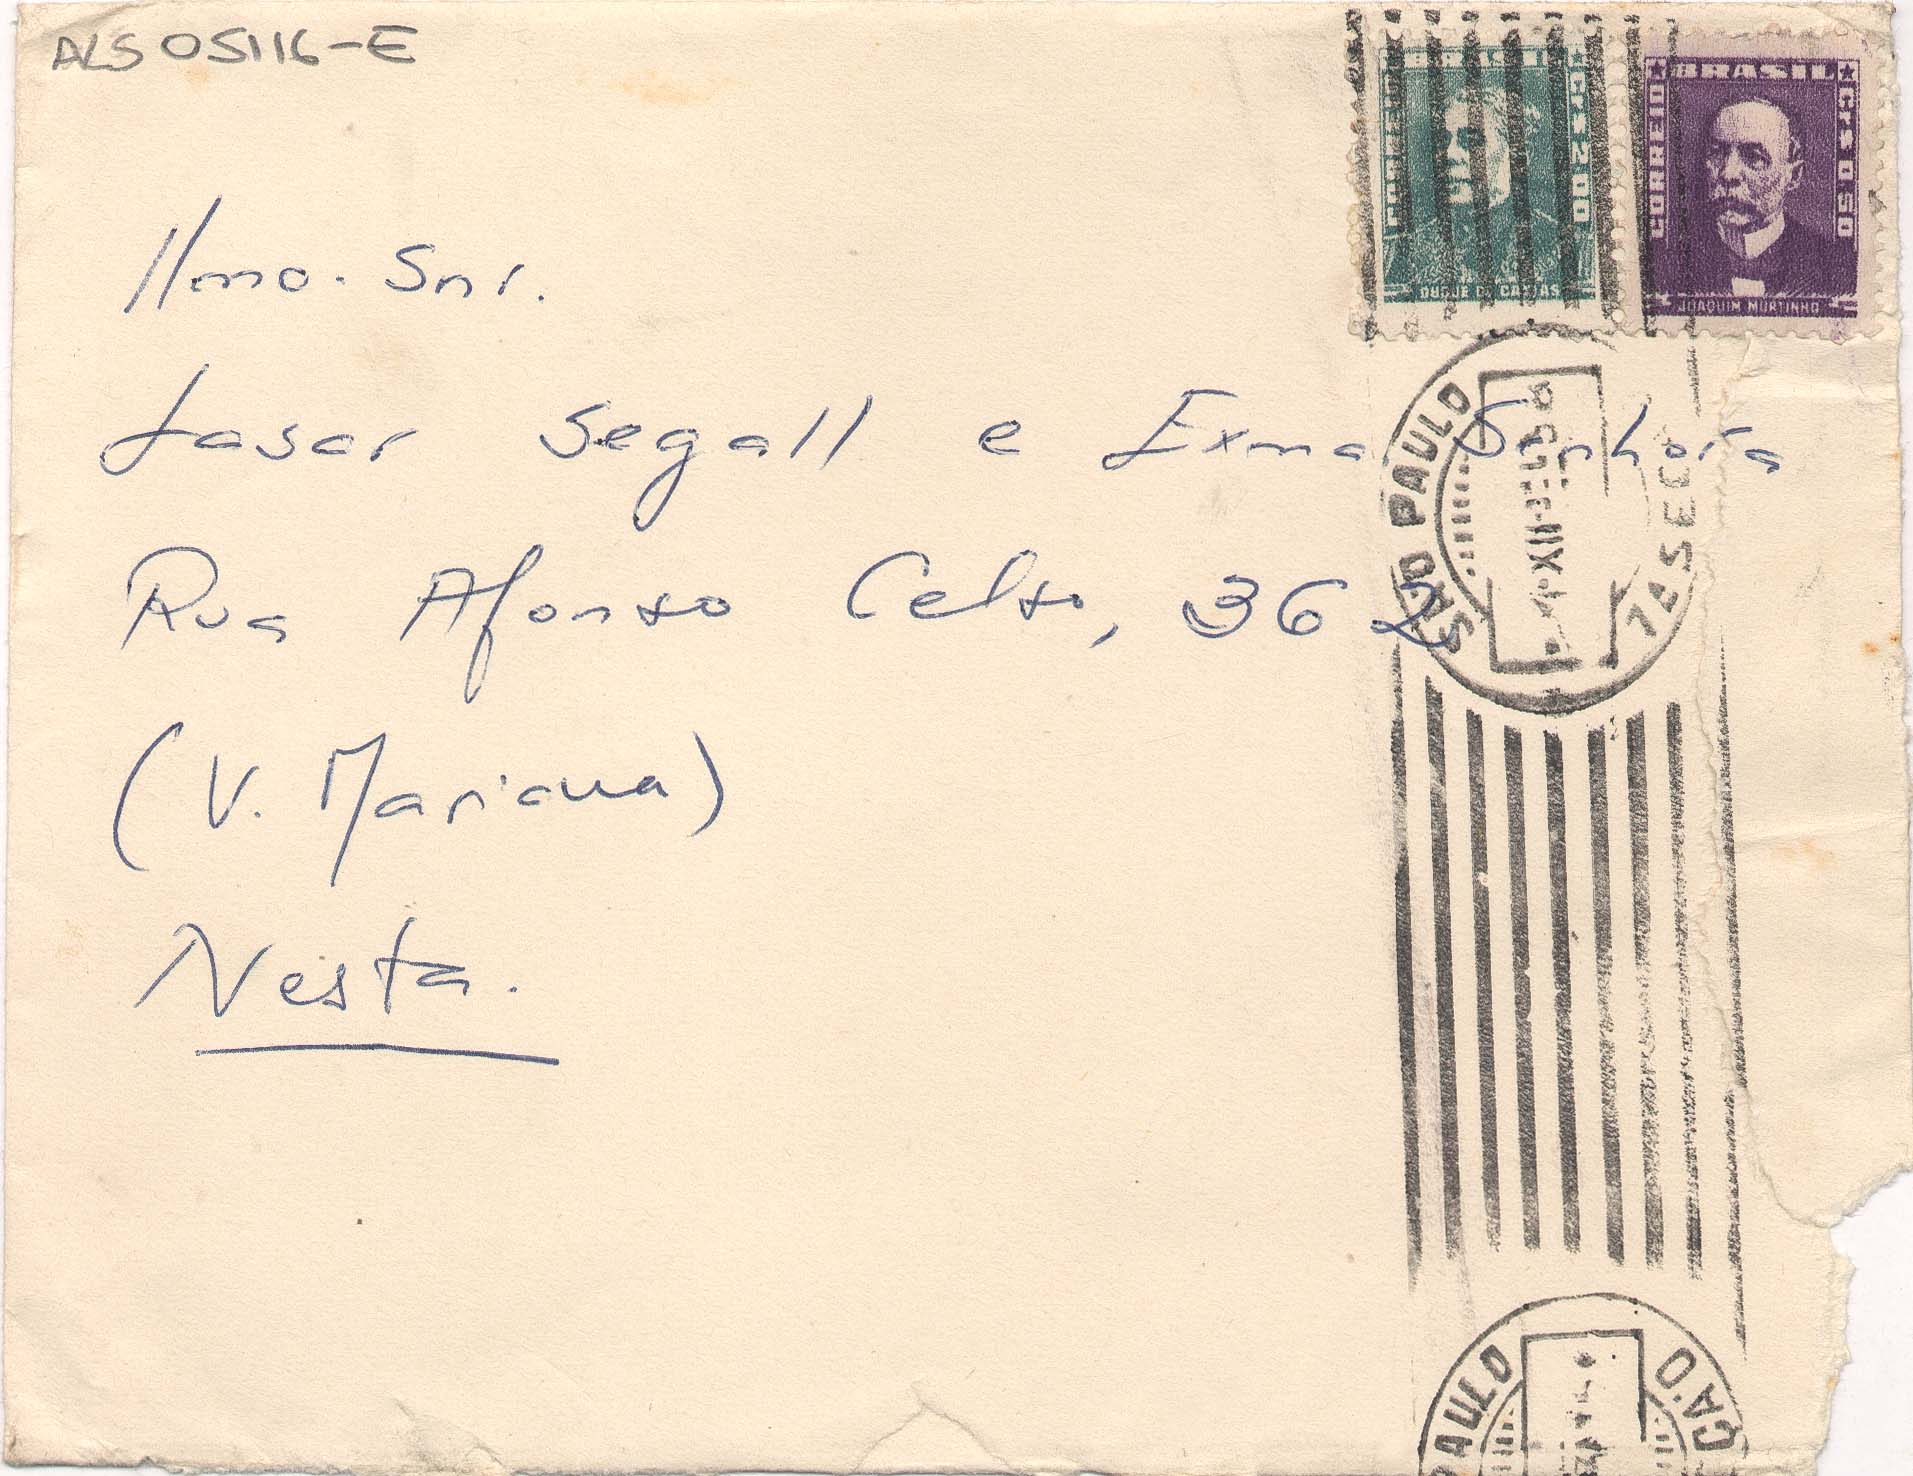 ALS 05116-E
BRASIL
CORREIO
Cr$ 2,00
DUQUE DE CAXIAS
BRASIL
CORREIO
Cr$ 0,50
JOAQUIM MURTINHO
Ilmo. Snr.
Lasar Segall e Exma Senhora
Rua Afonso Celso, 362
(V. Mariana)
Nesta.
SÃO PAULO
7A SEC
XII
PAULO